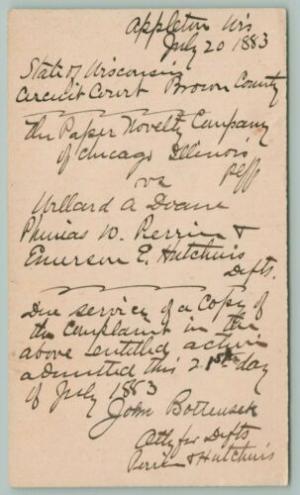 Appleton Wis
July 20 1883
State of Wisconsin
Circuit Court Brown County
The Paper Novelty Company
of Chicago Illinois
Plff
vs
Willard A Doane
Phineas W. Perrin &
Emerson E. Hutchins
Defts.
Due service of a Copy of
the Complaint in the
above entitled action
admitted this 21st day
of July 1883
John Bottensek
Atty for Defts
Perrin & Hutchins